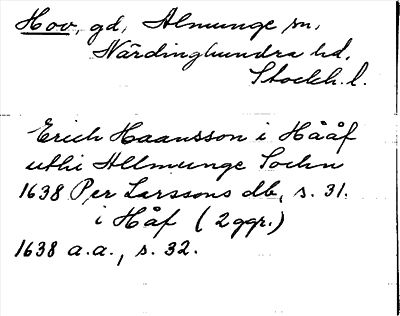 Hov, gd, Almunge sn,
Närdinghundra hd,
Stockh. l.
Erich Haansson i Hååf
uthi Allmunge Sochn
1638 Per Larssons db, s. 31.
i Håf (2 ggr.)
1638 a.a., s. 32.